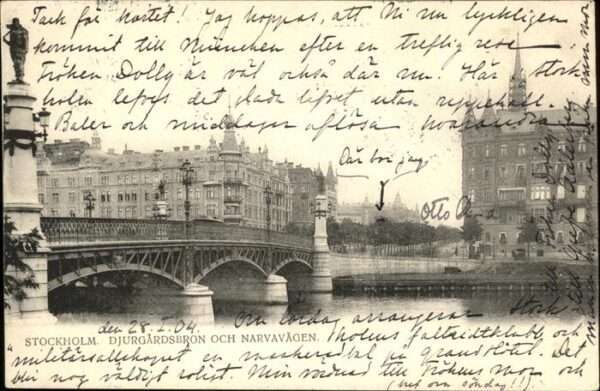 Tack för kortet! Jag hoppas, att Ni nu lyckligen
kommit till München efter en treflig resa
Fröken Dolly är väl också där nu. Här i Stock-
holm lefves det glada lifvet utan uppehåll.
Baler och middagar aflösa hvarandra
Där bor jag
Otto
STOCKHOLM. DJURGÅRDSBRON OCH NARVAVÄGEN.
den 28-I-04. Om lördag arrangerar Stock
holms fältridtklubb och
militärsällskapet en maskerad bal på Grand Hôtel. Det
blir nog väldigt roligt. Min vördnad till Frökens mor och
(hut om söndag!!)